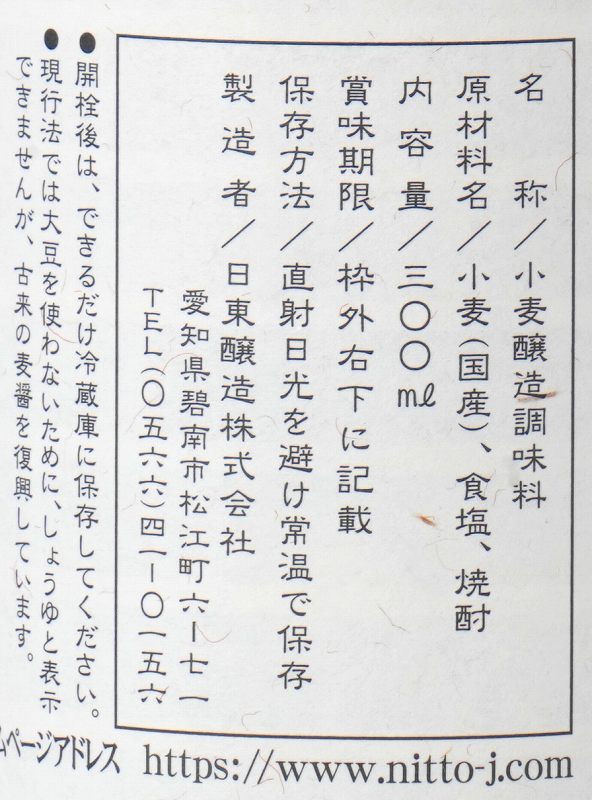 名称／小麦醸造調味料
原材料名／小麦(国産)、食塩、焼酎
内容量／三〇〇ml
賞味期限／枠外右下に記載
保存方法／直射日光を避け常温で保存
製造者／日東醸造株式会社
愛知県碧南市松江町六ー七一
TEL(〇五六六)四一ー〇一五六
●開栓後は、できるだけ冷蔵庫に保存してください。
●現行法では大豆を使わないために、しょうゆと表示
できませんが、古来の麦醤を復興しています。
ムページアドレス https://www.nitto-j.com